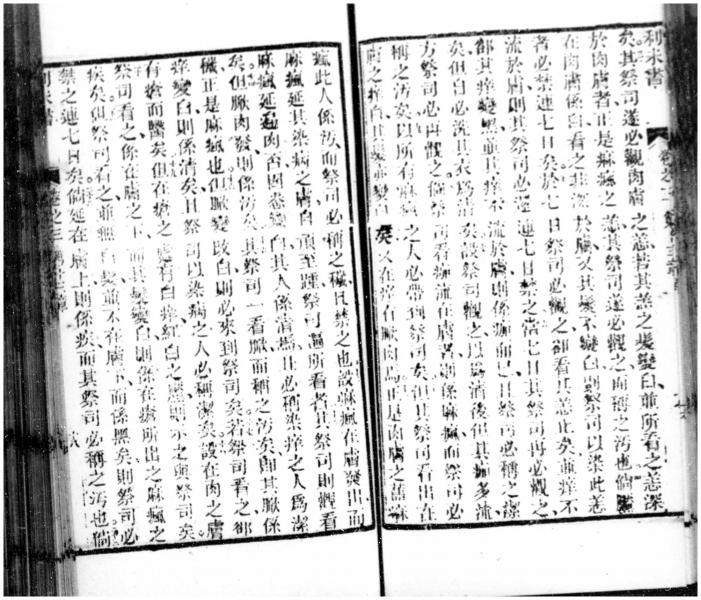 利未書
矣其祭司遂必觀肉膚之恙若其恙之髮變白並所看之恙深
於肉膚者正是麻瘋之恙其祭司遂必觀之而稱之汚也倘
在肉膚係白看之非深於膚又其髮不變白則祭司以染此恙
者必禁連七日矣於七日祭司必觀之卻看其恙此矣並痒不
流於膚則其祭司必還連七日禁之當七日其祭司再必觀之
卻其痒變黑並其痒不流於膚則係痂而已且祭司必稱之潔
矣但自必洗其衣爲清矣設祭司觀之以爲清後但其痂多流
方祭司必再觀之倘祭司看痂流在膚者則係麻瘋而祭司必
稱之汚矣以所有麻瘋之人必帶到祭司矣但其祭司看出在
膚之痒白其髮並變白矣又在痒在厥肉馬正是肉膚之舊麻
瘋此人係汚而祭司必稱之穢且禁之也設麻瘋在膚發出而
麻瘋延其染病之膚自頂至踵祭司遍所看者其祭司則觀看
麻瘋延遍肉否因悉變白其人係清焉且必稱染痒之人爲潔
矣但厥肉發則係汚矣其祭司一看厥而稱之汚矣卽其厥係
穢正是麻瘋也但厥變改白則必來到祭司矣若祭司看之卻
痒變白則係清矣且祭司以染病之人必稱潔矣設在肉之膚
有瘡而醫矣但在瘡之處有白痒紅白之恙則示之與祭司矣
祭司看之係在膚之下而其髮變白則係在瘡所出之麻瘋之
疾矣但祭司看之並無白髮並不在膚下而係黑矣則祭司必
禁之連七日矣倘延在膚上則係疾而其祭司必稱之汚也倘
利未書